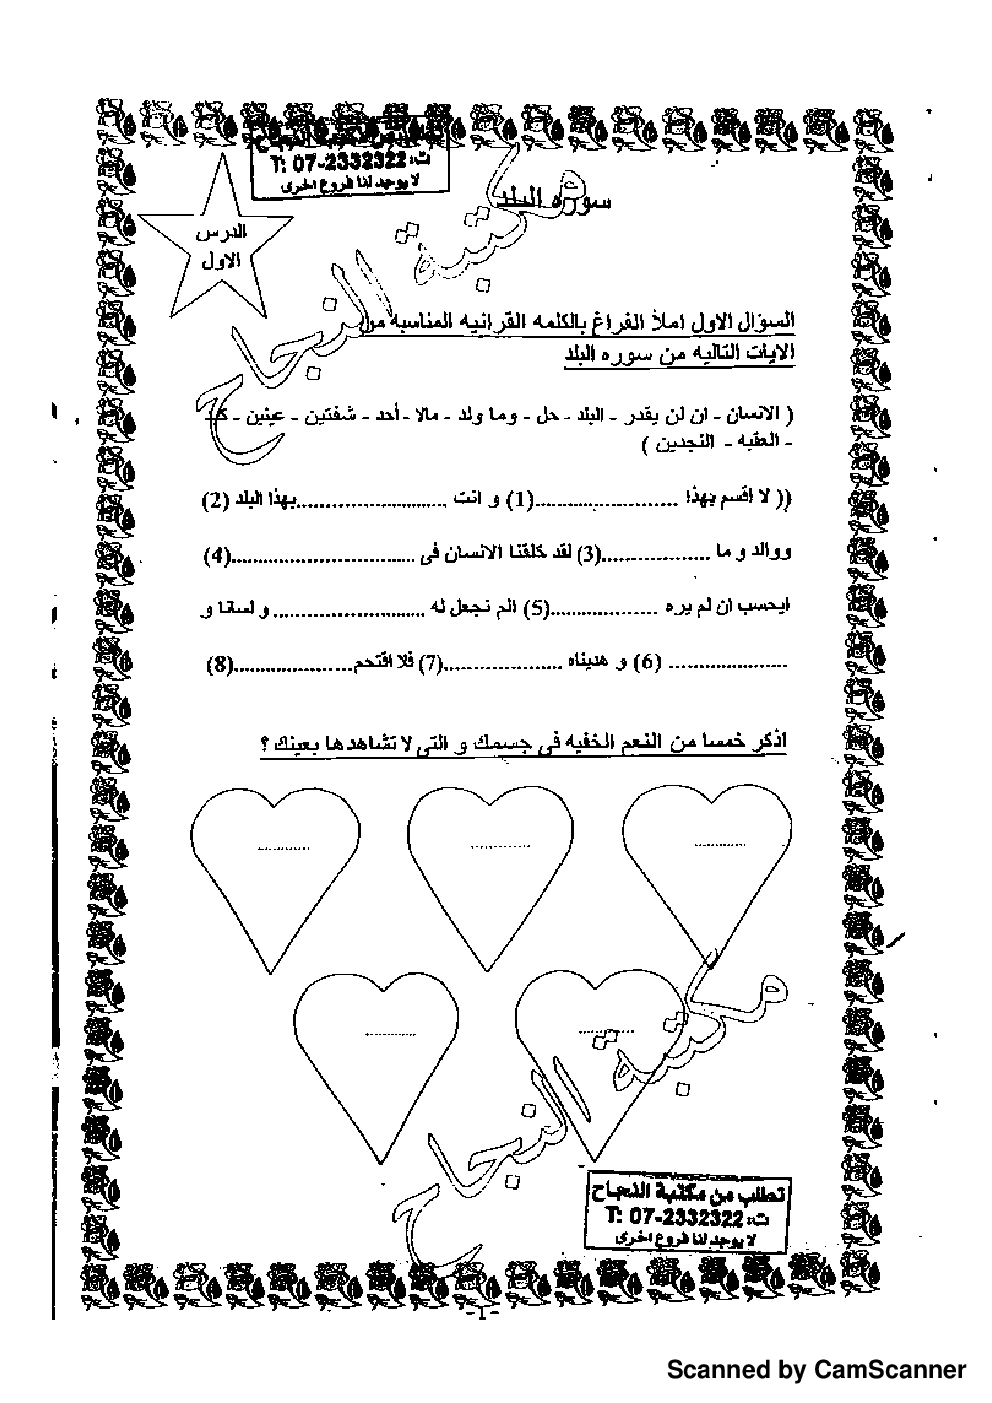 ت: T: 07-2332322
لا يوجد لنا فروع اخرى
سوره البلد
الدرس
الاول
مكتبة النجاح
السؤال الاول املأ الفراغ بالكلمه القرانيه المناسبه من
الايات التاليه من سوره البلد
( الانسان - ان لن يقدر - البلد - حل - وما ولد - مالا - أحد - شفتين - عينين -
- العقبه - النجدين )
(( لا اقسم بهذا ........................(1) و انت ..........................بهذا البلد (2)
ووالد و ما ..................(3) لقد خلقنا الانسان فى ...............................(4)
ايحسب ان لم يره ..................(5) الم نجعل له ......................... و لسانا و
.................... (6) و هديناه ....................(7) فلا اقتحم....................(8)
اذكر خمسا من النعم الخفيه فى جسمك و التى لا تشاهدها بعينك ؟
............ ............ ............
............ ............
مكتبة النجاح
تطلب من مكتبة النجاح
ت: T: 07-2332322
لا يوجد لنا فروع اخرى
-1-
Scanned by CamScanner